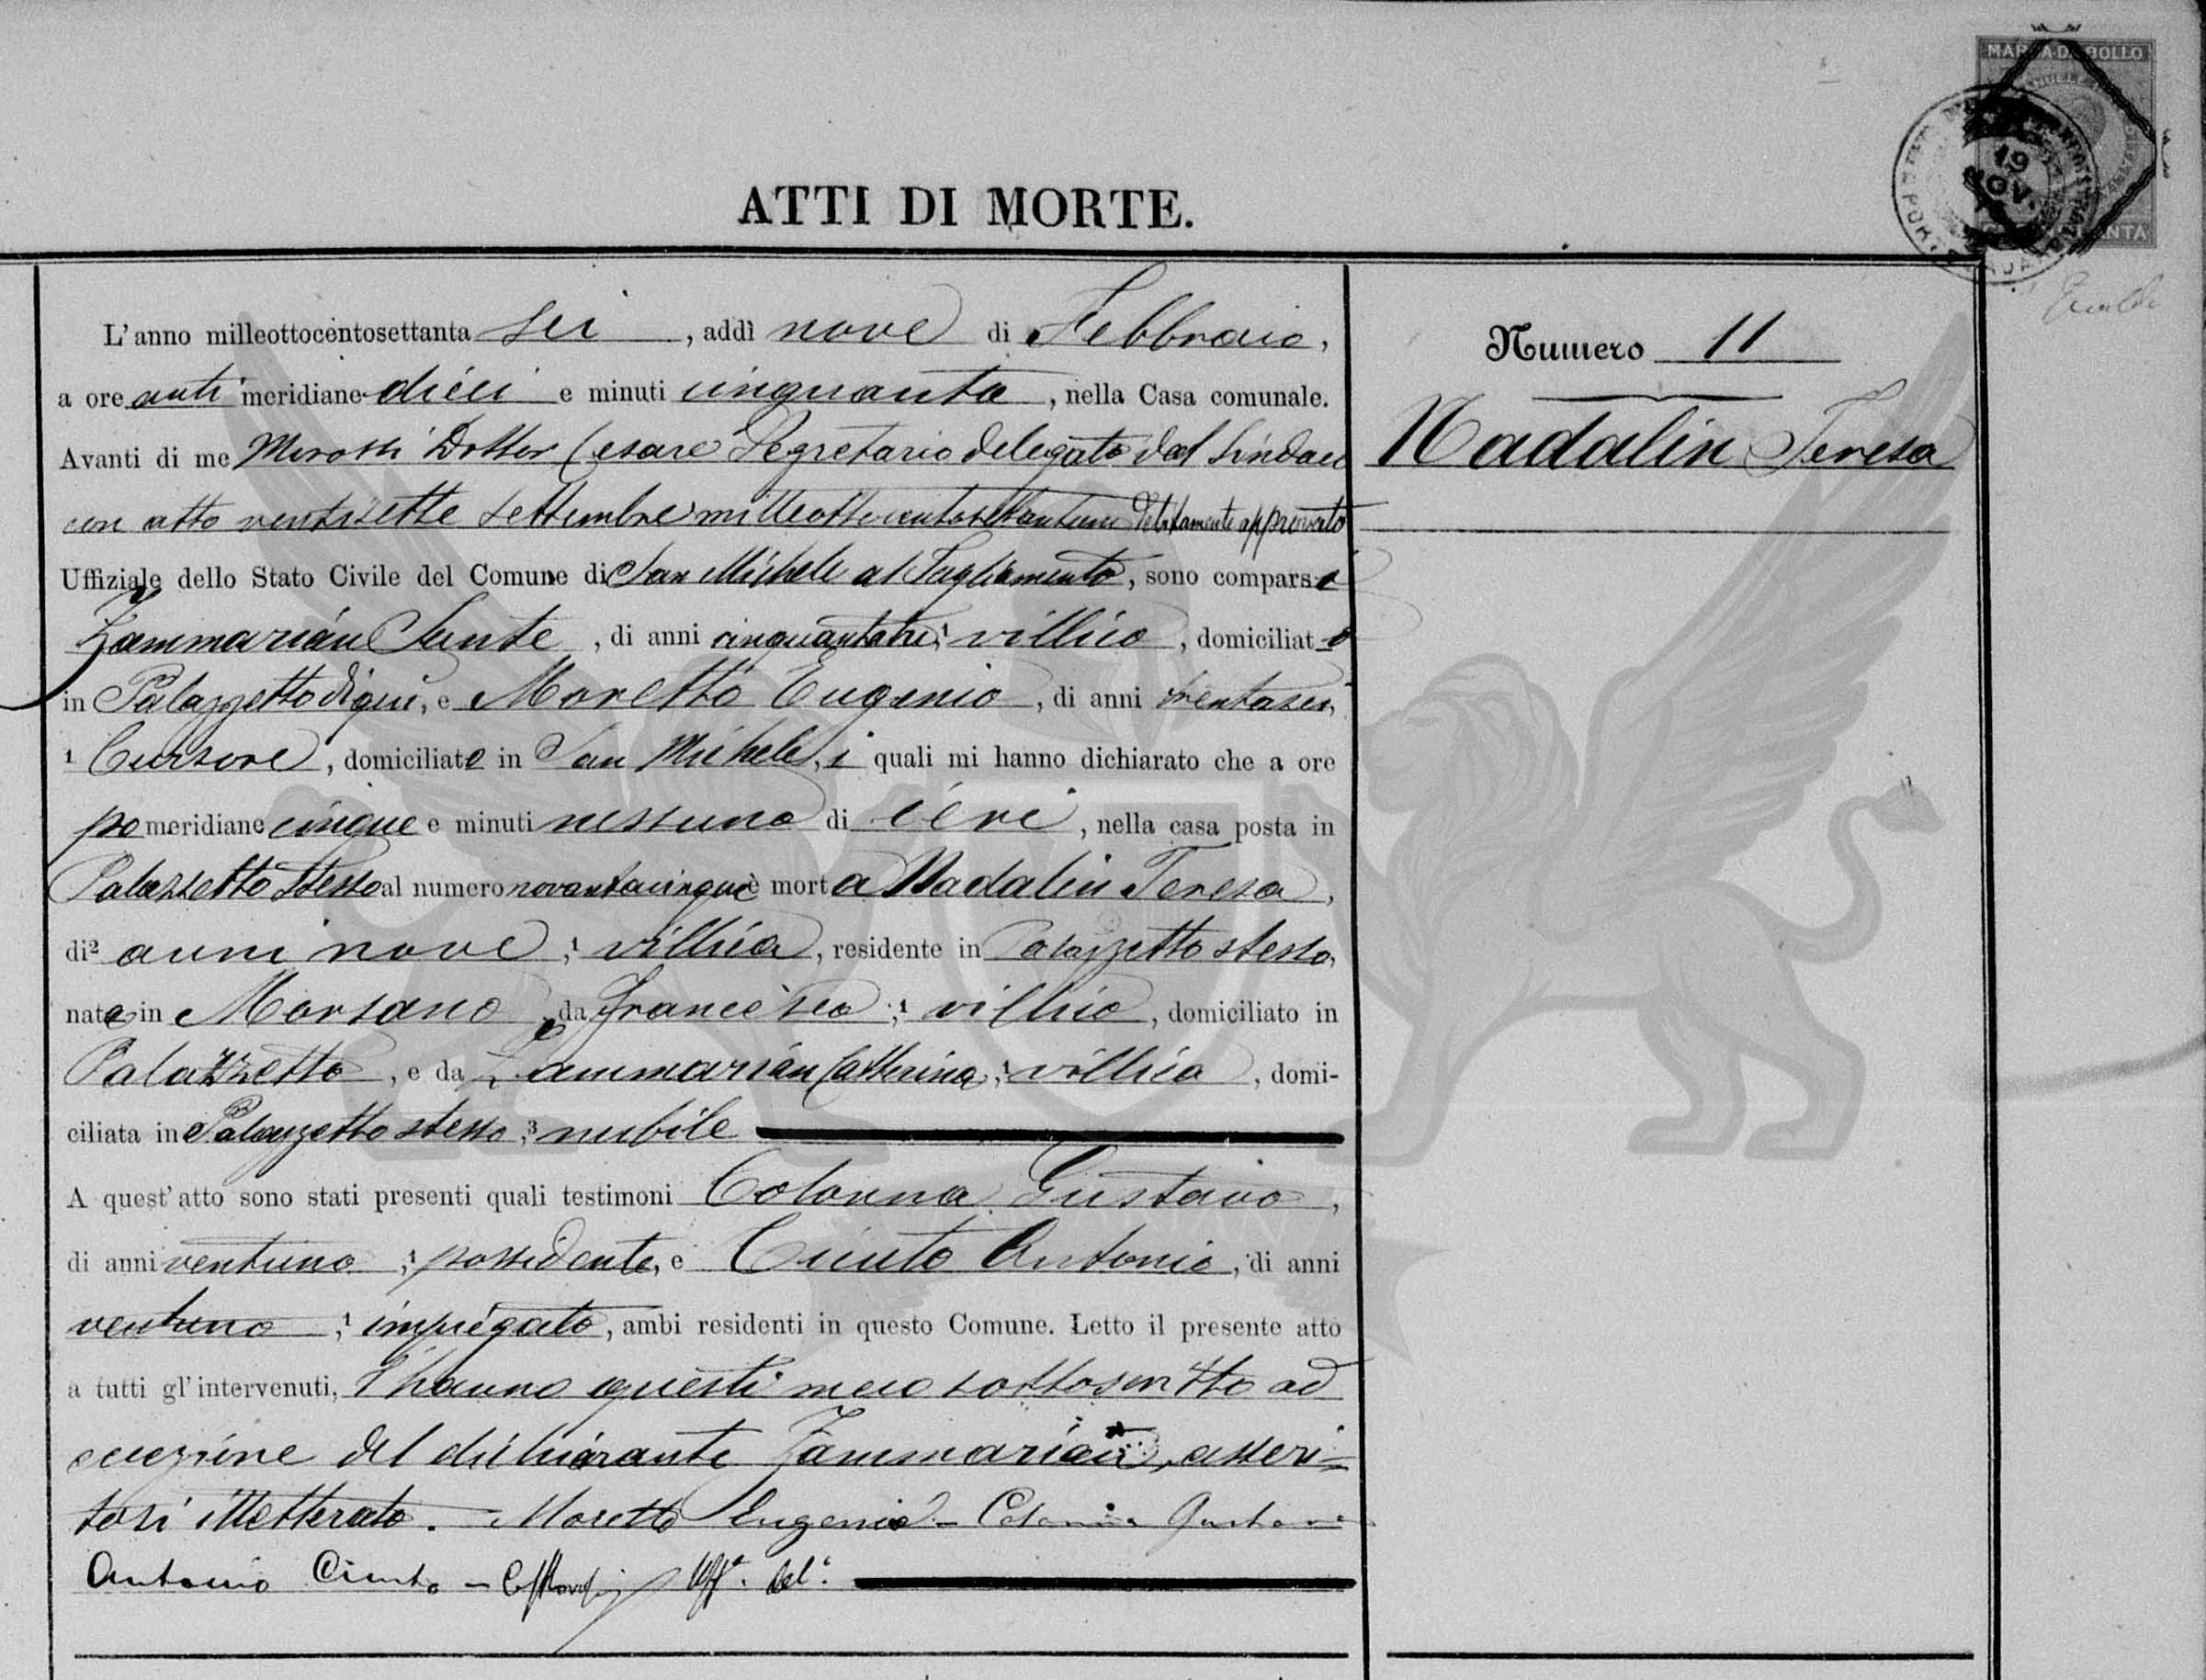 MARCA DA BOLLO
19
NOV.
ATTI DI MORTE.
L'anno milleottocentosettanta sei, addì nove di Febbraio,
a ore anti meridiane dieci e minuti cinquanta, nella Casa comunale.
Avanti di me Dottor Cesare Segretario delegato dal Sindaco
con atto ventisette settembre milleottocentosettantuno debitamente approvato
Uffiziale dello Stato Civile del Comune di San Michele al Tagliamento, sono comparsi
Zammarián Sante, di anni cinquantatre, ¹ villico, domiciliato
in Palazzetto di qui, e Moretto Eugenio, di anni trentasei,
¹ Cursore, domiciliato in San Michele, i quali mi hanno dichiarato che a ore
pomeridiane cinque e minuti nessuno di ieri, nella casa posta in
Palazzetto stesso al numero novantacinque è morta Nadalin Teresa,
di² anni nove, ¹ villica, residente in Palazzetto stesso,
nata in Morsano, da Francesco, ¹ villico, domiciliato in
Palazzetto, e da Zammarián Catterina, ¹ villica, domi-
ciliata in Palazzetto stesso, ³ nubile
A quest'atto sono stati presenti quali testimoni Colonna Gustavo,
di anni ventuno, ¹ possidente, e Ciuto Antonio, di anni
ventuno, ¹ impiegato, ambi residenti in questo Comune. Letto il presente atto
a tutti gl'intervenuti, l'hanno questi meco sottoscritto ad
eccezione del dichiarante Zammarián, asseri-
tosi illetterato. Moretto Eugenio - Colonna Gustavo
Antonio Ciuto - Uff.e del.o
Numero 11
Nadalin Teresa